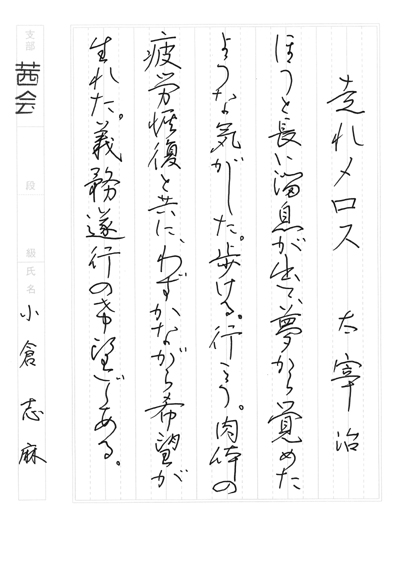 走れメロス　太宰治
ほうと長い溜息が出て、夢から覚めた
ような気がした。歩ける。行こう。肉体の
疲労恢復と共に、わずかながら希望が
生れた。義務遂行の希望である。
支部
茜会
段
級
氏名
小倉志麻